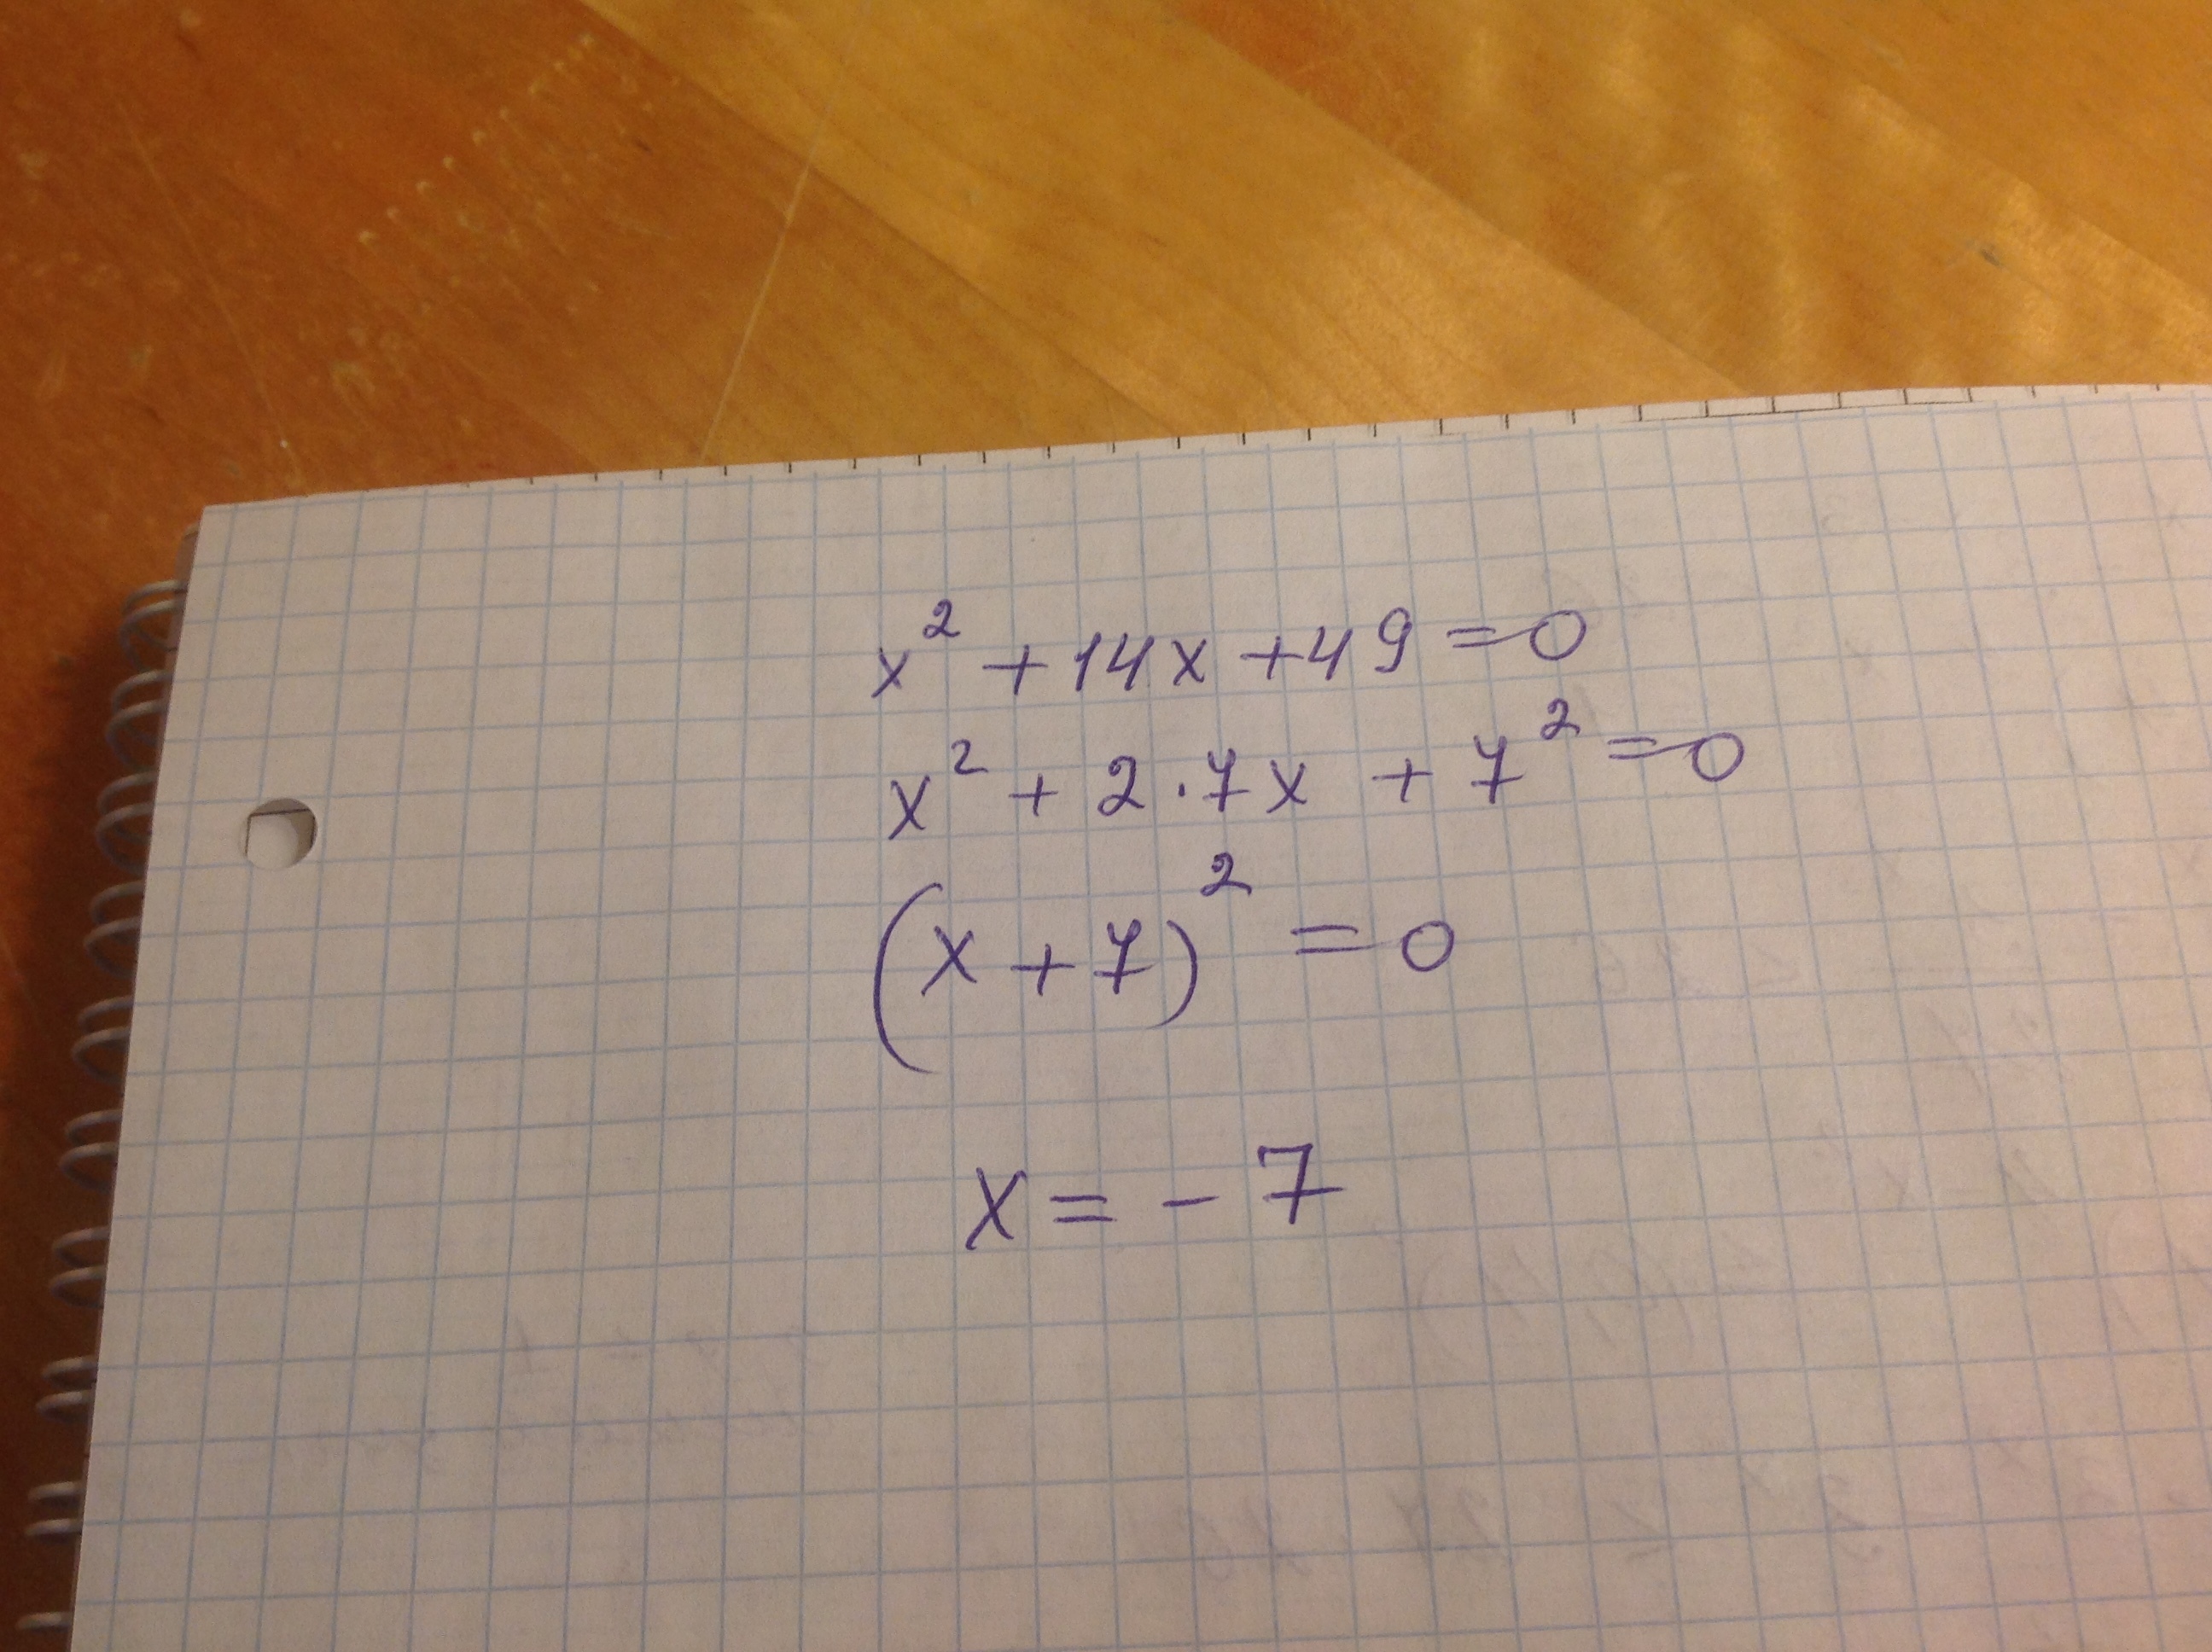 x² + 14x + 49 = 0
x² + 2 · 7x + 7² = 0
(x + 7)² = 0
x = - 7